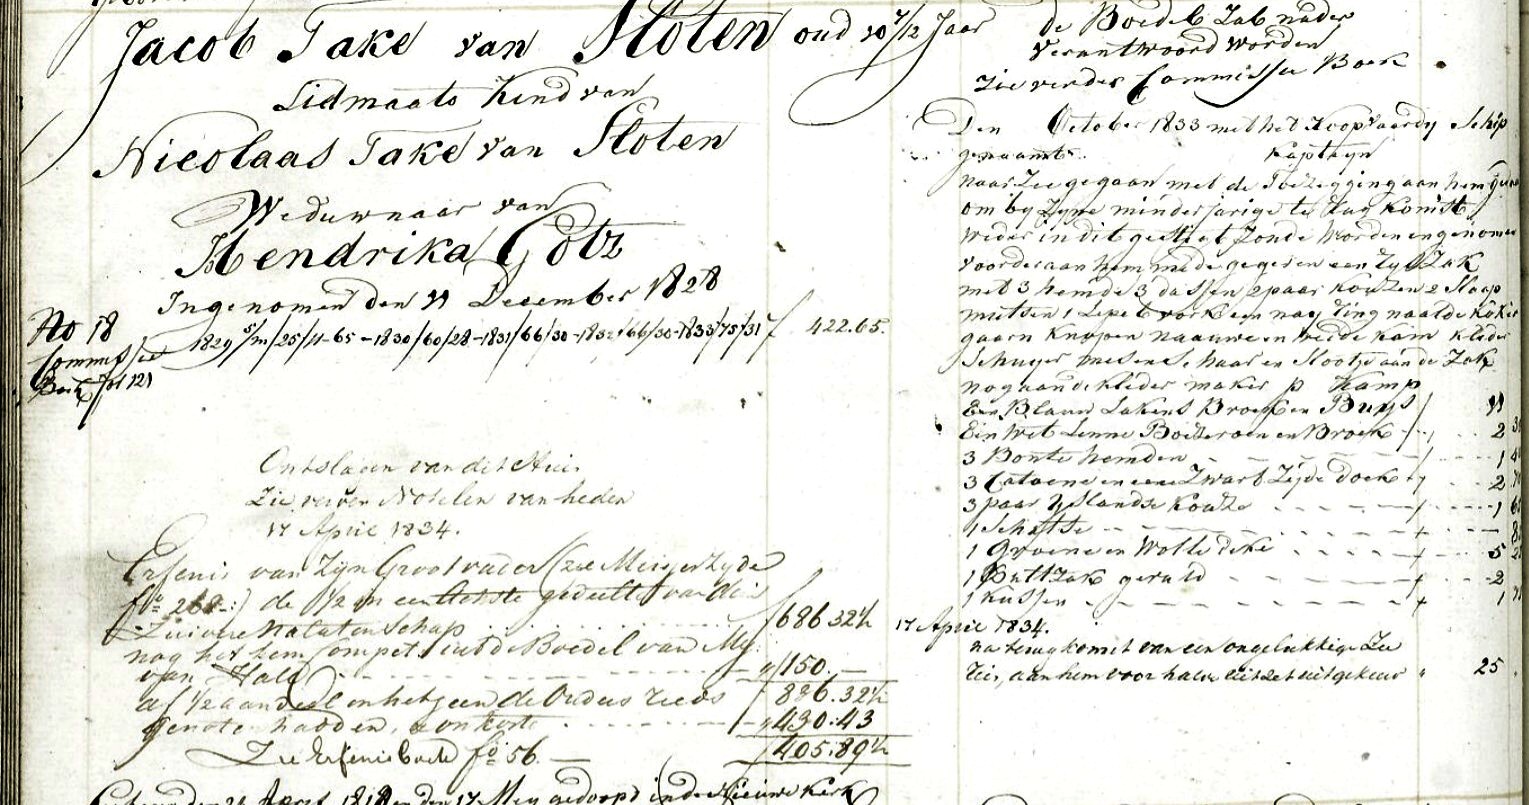 Jacob Take van Sloten oud 10 7/12 Jaar
Lidmaats Kind van
Nicolaas Take van Sloten
Weduwnaar van
Hendrika Götz
Ingenomen den 11 December 1828
No 18
Commissie
Boek fol 121
1829 5/m/25/11-65 - 1830/60/28 - 1831/66/30 - 1832/66/30 - 1833/75/31 f 422.65.
Ontslagen van dit Huis
Zie Notulen van heden
17 April 1834.
Erfenis van Zyn Grootvader (zie Meisjes Zyde
fo 268.) de 1/2 in een gedeelte van die
Zuivere Nalatenschap f 686 32½
nog het hem Compet. uit de Boedel van Mej.
van Hall " 150.—
836.32½
af 1/2 aandeel in hetgeen de Ouders reeds
genoten hadden, en onkoste " 430.43
Zie Erfenisboek fo 56. — f 405.89½
den 21 April 1818 en den 17 Mey gedoopt in de Nieuwe Kerk
de Boedel Zal nader
Verantwoord worden
Zie verder Commissie Boek
Den October 1833 met het Koopvaardy Schip
genaamt Kaptyn
naar Zee gegaan met de Toezegging aan hem
om by Zyne minderjarige te Rug Komst
weder in dit gesticht Zoude Worden ingenomen
voorder aan hem mede gegeven een Zak
met 3 hemde 3 dassen 2 paar Kousen 2 Slaap
mutsen 1 Lepel vork een nay ding naalde Koker
gaarn Knopen naauwe en wyde Kam Kleder
Schuyer mes en Schaar en Slootje aan de Zak
nog aan de kleder maker p Kamp
Een Blaauw Lakens Broek en Buys 11
Een wit Linne Boezeroen en Broek 2
3 Bonte hemden 1
3 Catoene en eene Zwart Zyde doek 2
3 paar Yslandse Kousen 1
1
1 Groene en Wolle deke 5
1 Bultzak gevuld 2
1 Kussen 1
17 April 1834.
na terug komst van een ongelukkige Zee
reis, aan hem voor halve uitzet uitgekeert " 25